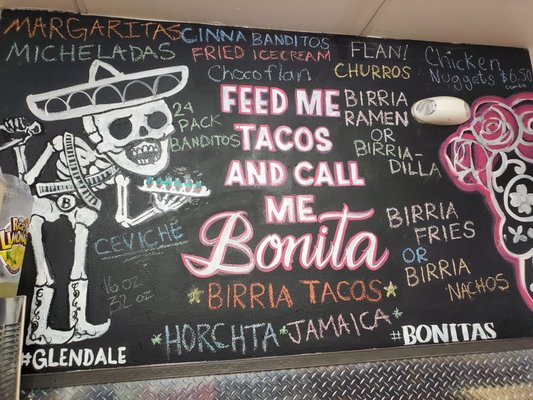 MARGARITAS
MICHELADAS
CINNABANDITOS
FRIED ICECREAM
Chocoflan
FLAN!
CHURROS
Chicken
Nuggets $6.50
combo
24
PACK
BANDITOS
FEED ME
TACOS
AND CALL
ME
Bonita
BIRRIA
RAMEN
OR
BIRRIA-
DILLA
CEVICHE
16 oz
32 oz
B
BIRRIA
FRIES
OR
BIRRIA
NACHOS
BIRRIA TACOS
HORCHTA
JAMAICA
#BONITAS
#GLENDALE